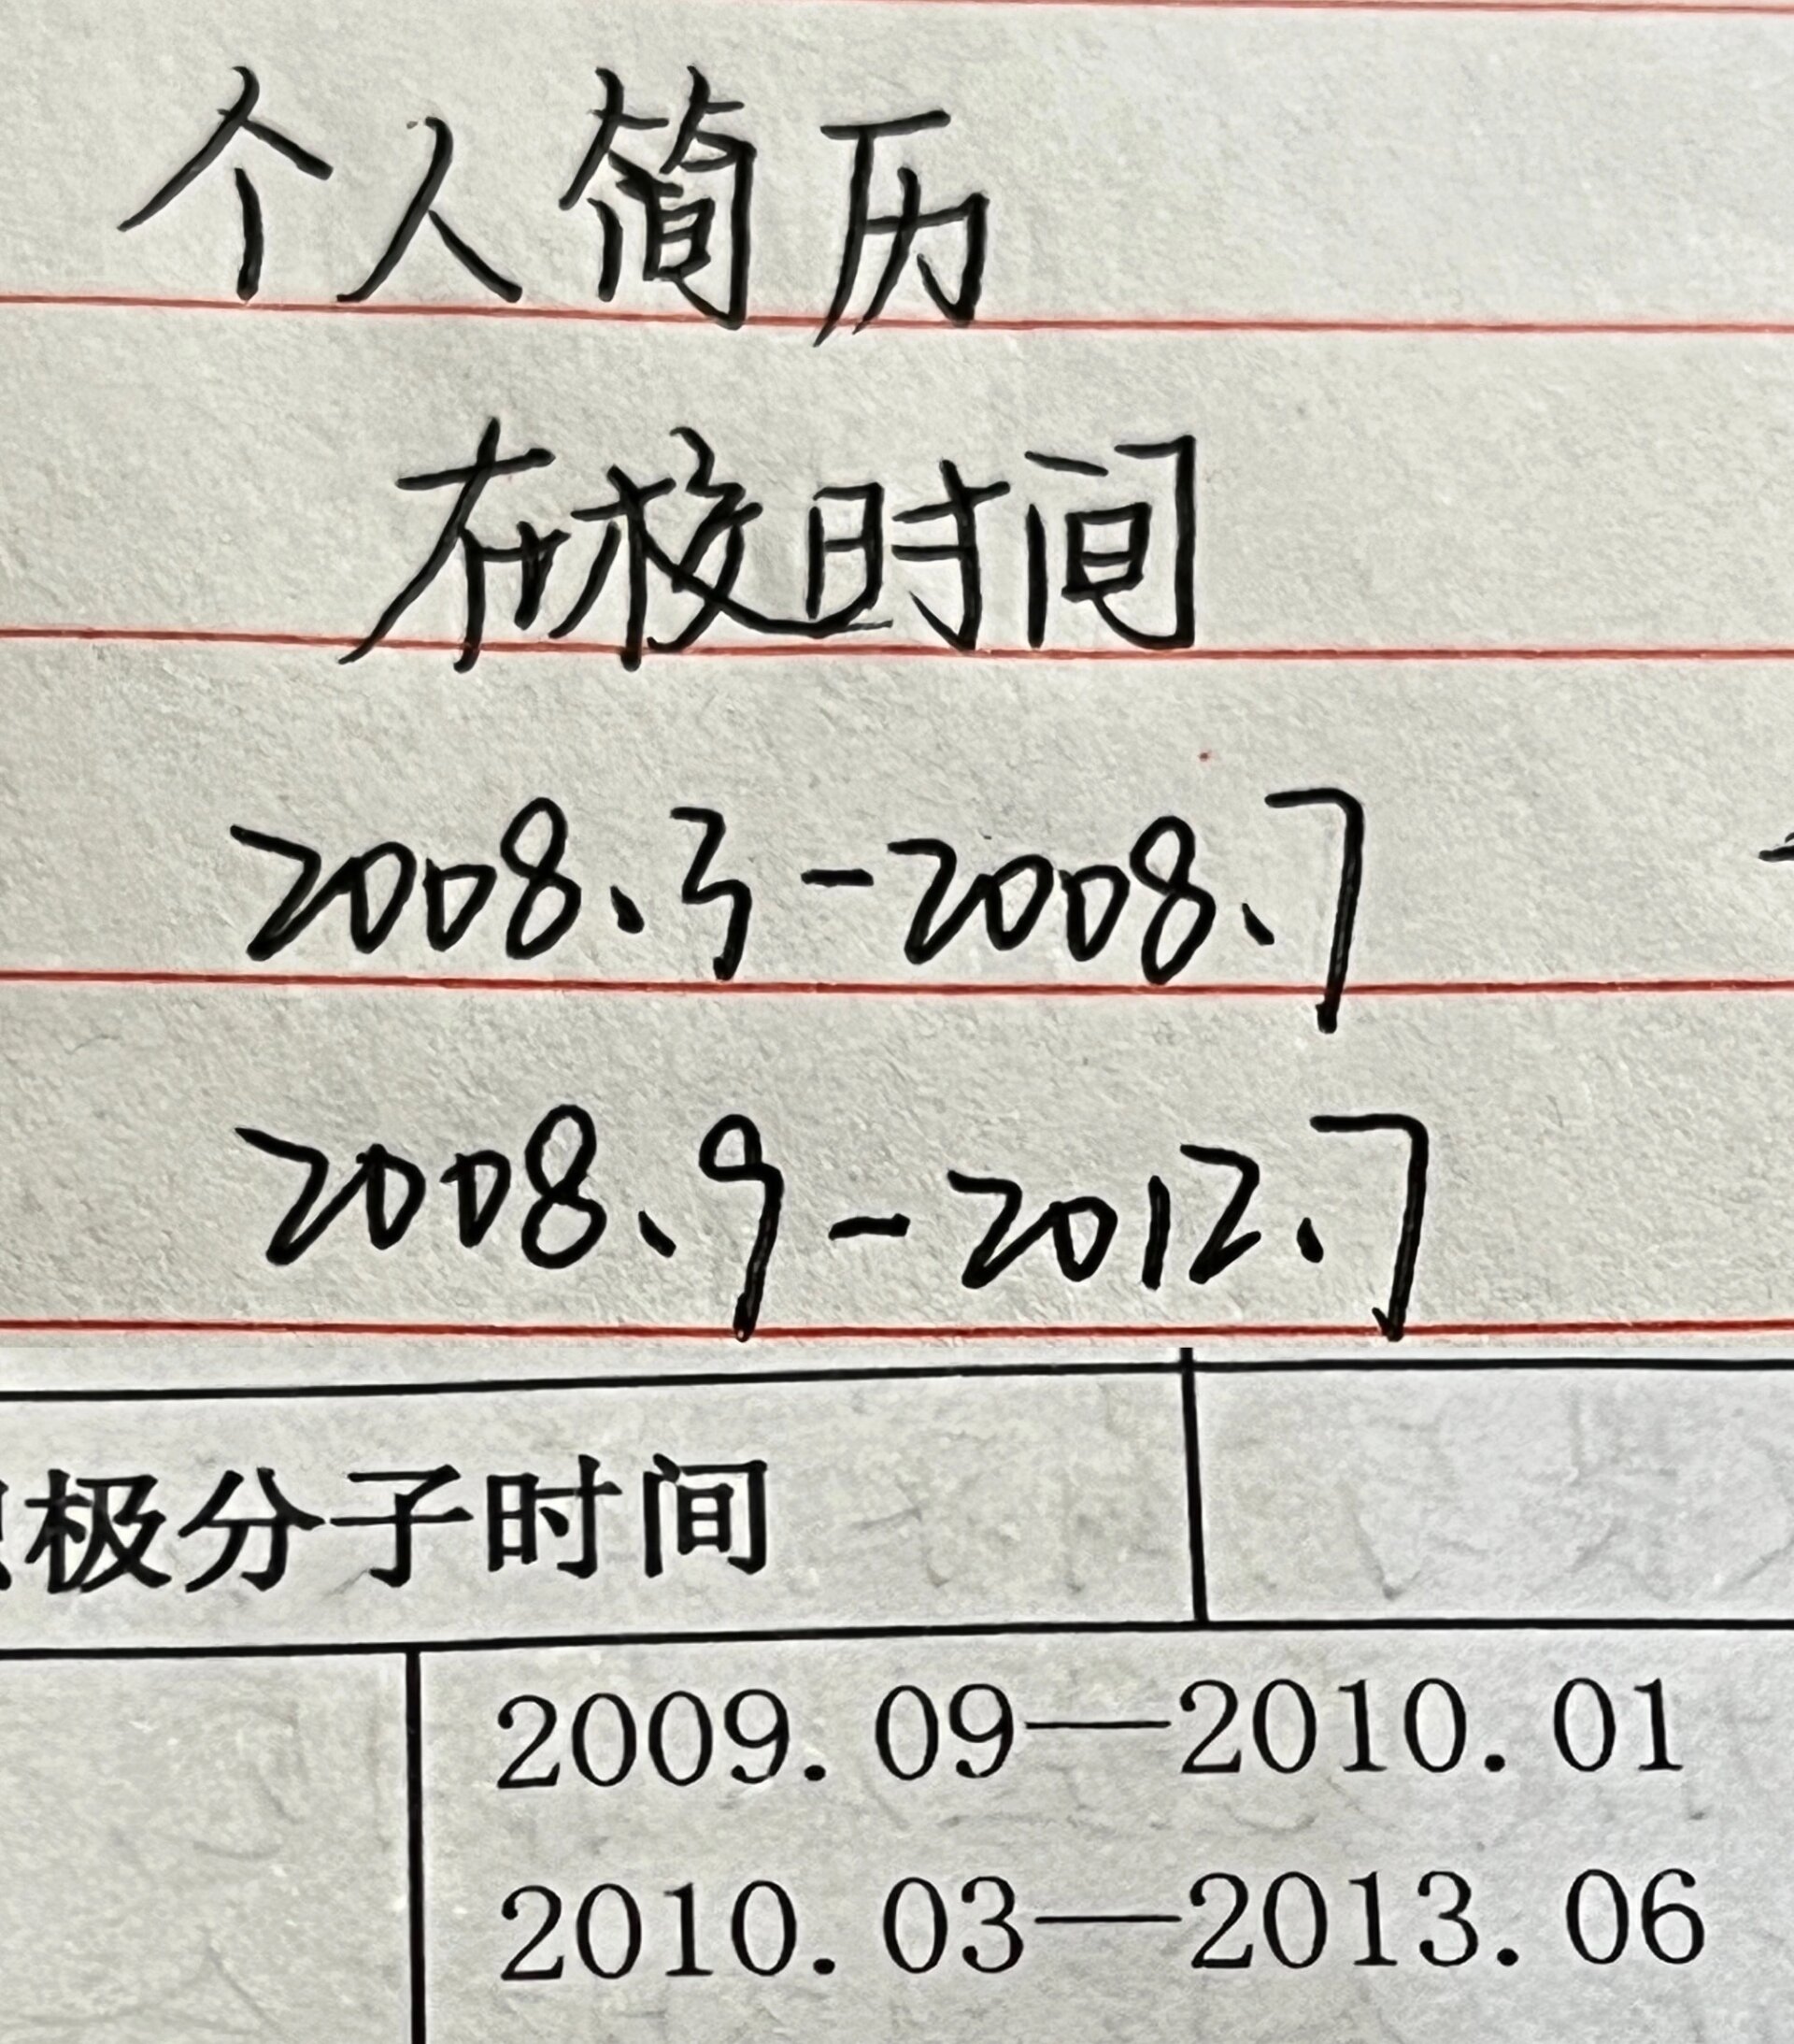 个人简历
在校时间
2008.3-2008.7
2008.9-2012.7
极分子时间
2009.09—2010.01
2010.03—2013.06